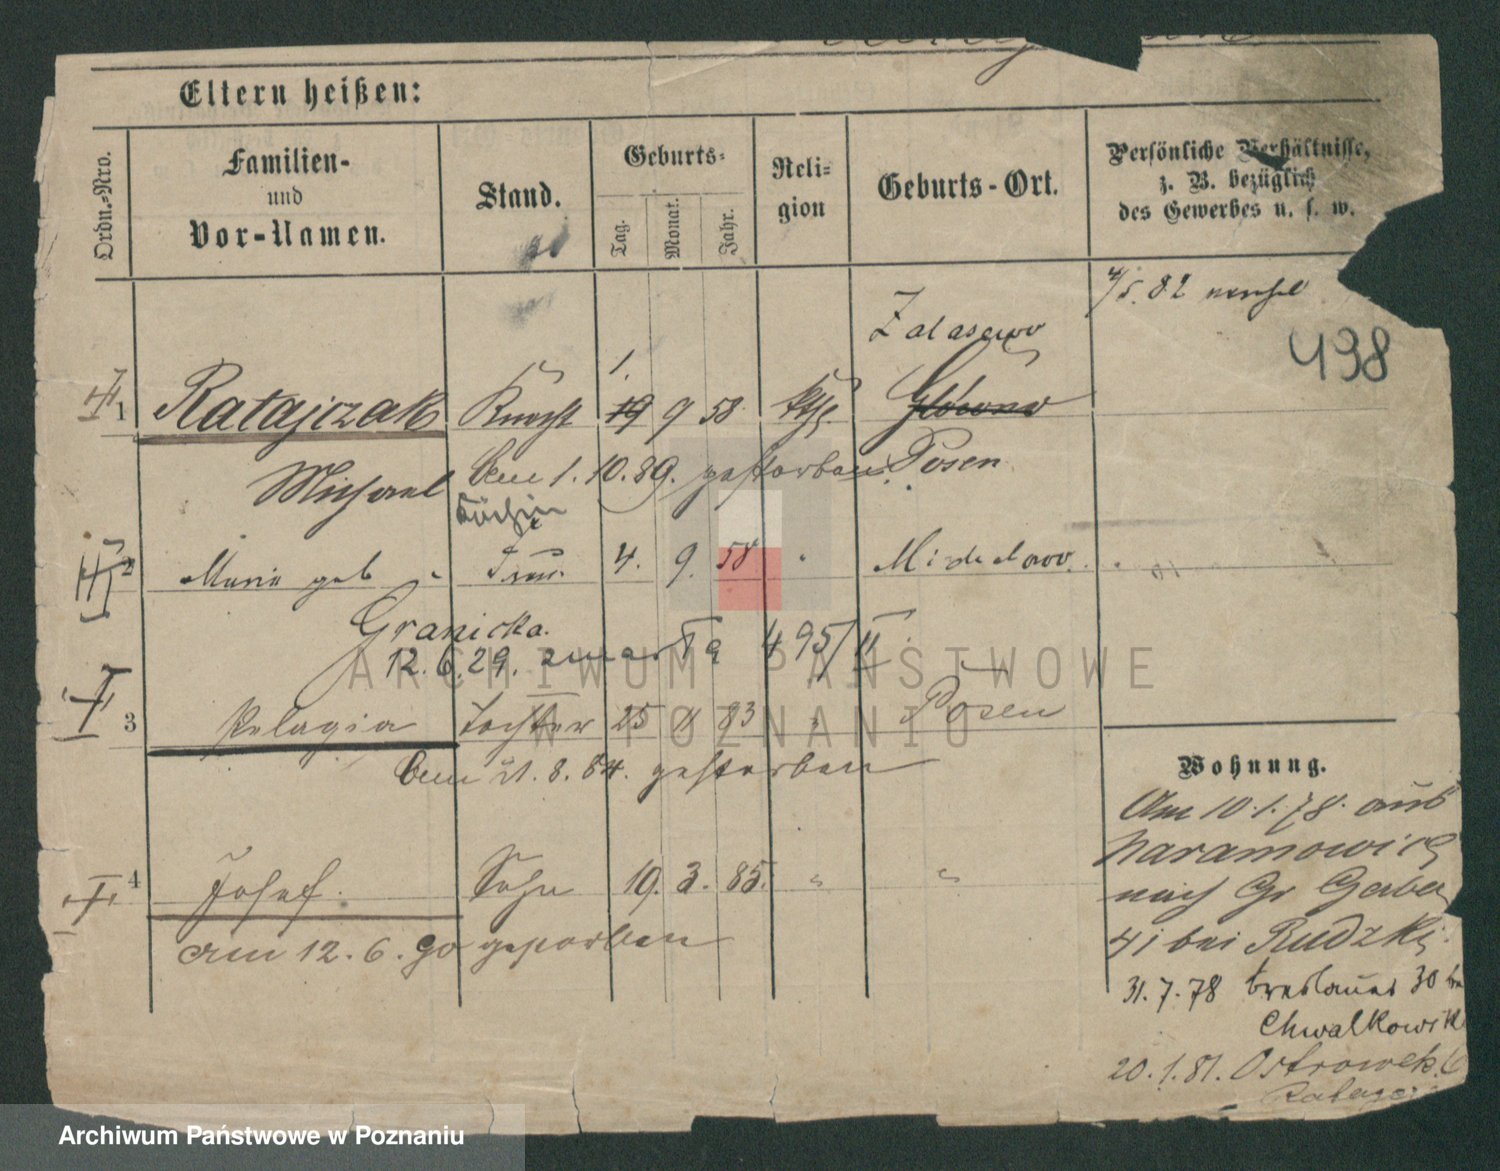 Eltern heißen:
Ordn.-Nro.
Familien-
und
Vor-Namen.
Stand.
Geburts-
Tag.
Monat.
Jahr.
Reli-
gion
Geburts-Ort.
Persönliche Verhältnisse,
z. B. bezüglich
des Gewerbes u. s. w.
4/5. 82
498
Zalasewo
1.
1 Ratajczak Knecht 19 9 58. kth. Główno
Michael den 1. 10. 89. gestorben. Posen
Köchin
2 Maria geb Frau 4. 9. 58 "
Granicka.
12. 6. 29.
495/II
3 Pelagia Tochter 25 83 " Posen
Den 21. 8. 84. gestorben
4 Josef. Sohn 19. 3. 85. " "
am 12. 6. 90 gestorben
Wohnung.
Am 10. 1. 78. aus
Naramowice
nach Gr Gerber
41 bei Rudzki.
31. 7. 78 Breslauer 30 bei
Chwalkowsk
20. 1. 81. Ostrowek
ARCHIWUM PAŃSTWOWE
W POZNANIU
Archiwum Państwowe w Poznaniu